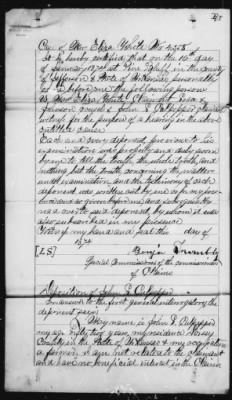 48
Case of Mrs Eliza White No 4258
It is hereby certified that on the 10th day
of January 1874 at Pine Bluff in the County
of Jefferson & State of Arkansas personally
before me the following persons
Mrs Eliza White Claimant
Johnson Counsel & John J. Culpepper Claimants
witness for the purpose of a hearing in the above
entitled cause
Each and every deponent previous to his
examination was properly and duly sworn
by me to tell the truth, the whole truth, and
nothing but the truth concerning the matter
under examination, and the testimony of each
deponent was written out by me
and as given by him and subscribed by
me by deponent by whom it was
also subscribed in my presence
Witness my hand and seal the day of
1874
[LS] Benja Trumbly
Special Commissioner of the commissioners
of Claims
Deposition of John J. Culpepper
In answer to the first general interrogatory the
deponent says
My name is John J Culpepper
my age years, my residence
County in the State of Arkansas & my occupation
a farmer, I am not related to the claimant
and have no beneficial interest in the Claim